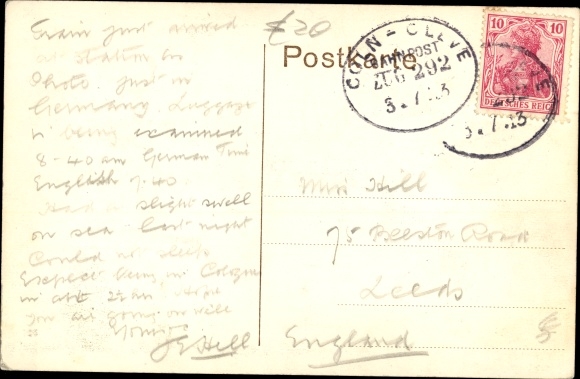 Train just arrived
at station on
Photo. just in
Germany. Luggage
is being examined
8-40 am German Time
English 7.40
Had a slight swell
on sea last night
Could not sleep
Expect being in Cologne
in abt 2½ an Hope
you are going on well
Yours
J E Hill
£20
Postkarte
CÖLN - CLEVE
BAHNPOST
ZUG 292
3.7.13
10 10
DEUTSCHES REICH
3.7.13
Miss Hill
75 Beeston Road
Leeds
England